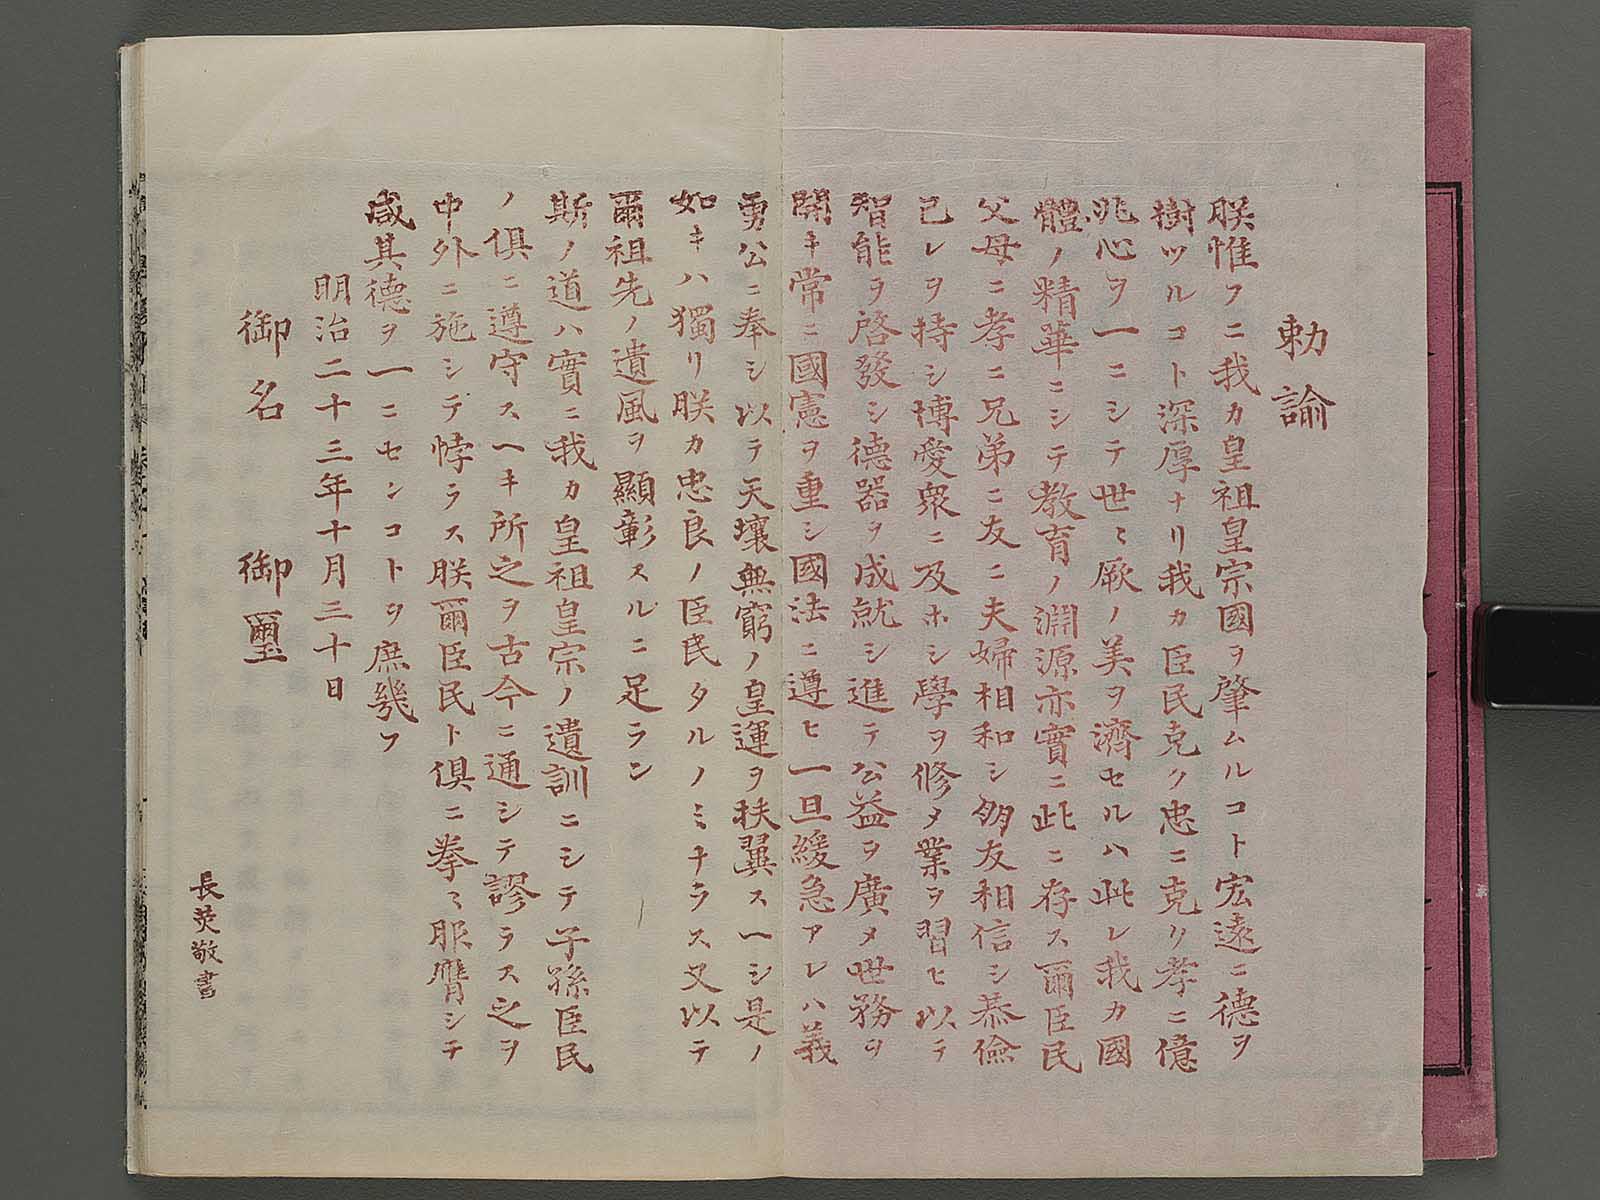 勅諭
朕惟フニ我カ皇祖皇宗國ヲ肇ムルコト宏遠ニ德ヲ
樹ツルコト深厚ナリ我カ臣民克ク忠ニ克ク孝ニ億
兆心ヲ一ニシテ世〻厥ノ美ヲ濟セルハ此レ我カ國
體ノ精華ニシテ教育ノ淵源亦實ニ此ニ存ス爾臣民
父母ニ孝ニ兄弟ニ友ニ夫婦相和シ朋友相信シ恭儉
己レヲ持シ博愛衆ニ及ホシ學ヲ修メ業ヲ習ヒ以テ
智能ヲ啓發シ德器ヲ成就シ進テ公益ヲ廣メ世務ヲ
開キ常ニ國憲ヲ重シ國法ニ遵ヒ一旦緩急アレハ義
勇公ニ奉シ以テ天壤無窮ノ皇運ヲ扶翼スヘシ是ノ
如キハ獨リ朕カ忠良ノ臣民タルノミナラス又以テ
爾祖先ノ遺風ヲ顯彰スルニ足ラン
斯ノ道ハ實ニ我カ皇祖皇宗ノ遺訓ニシテ子孫臣民
ノ俱ニ遵守スヘキ所之ヲ古今ニ通シテ謬ラス之ヲ
中外ニ施シテ悖ラス朕爾臣民ト俱ニ拳〻服膺シテ
咸其德ヲ一ニセンコトヲ庶幾フ
明治二十三年十月三十日
御名　御璽
長英敬書